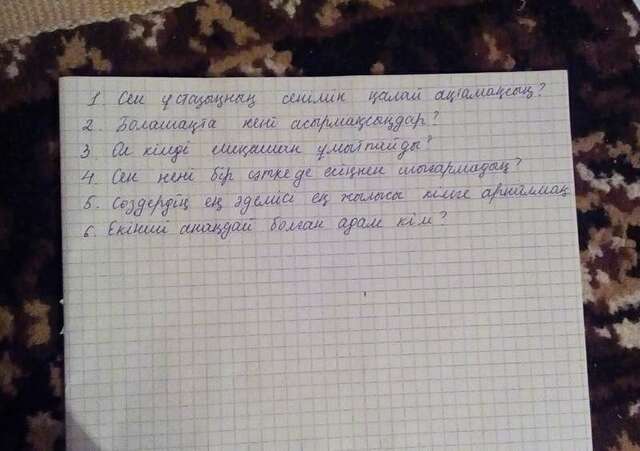 1. Сен ұстазыңның сенімін қалай ақтамақсың?
2. Болашақта нені асырмақсыңдар?
3. Ол кімді ешқашан ұмытпайды?
4. Сен нені бір сәтке де есіңнен шығармадың?
5. Сөздердің ең әдемісі ең жылысы кімге арналмақ
6. Екінші анаңдай болған адам кім?